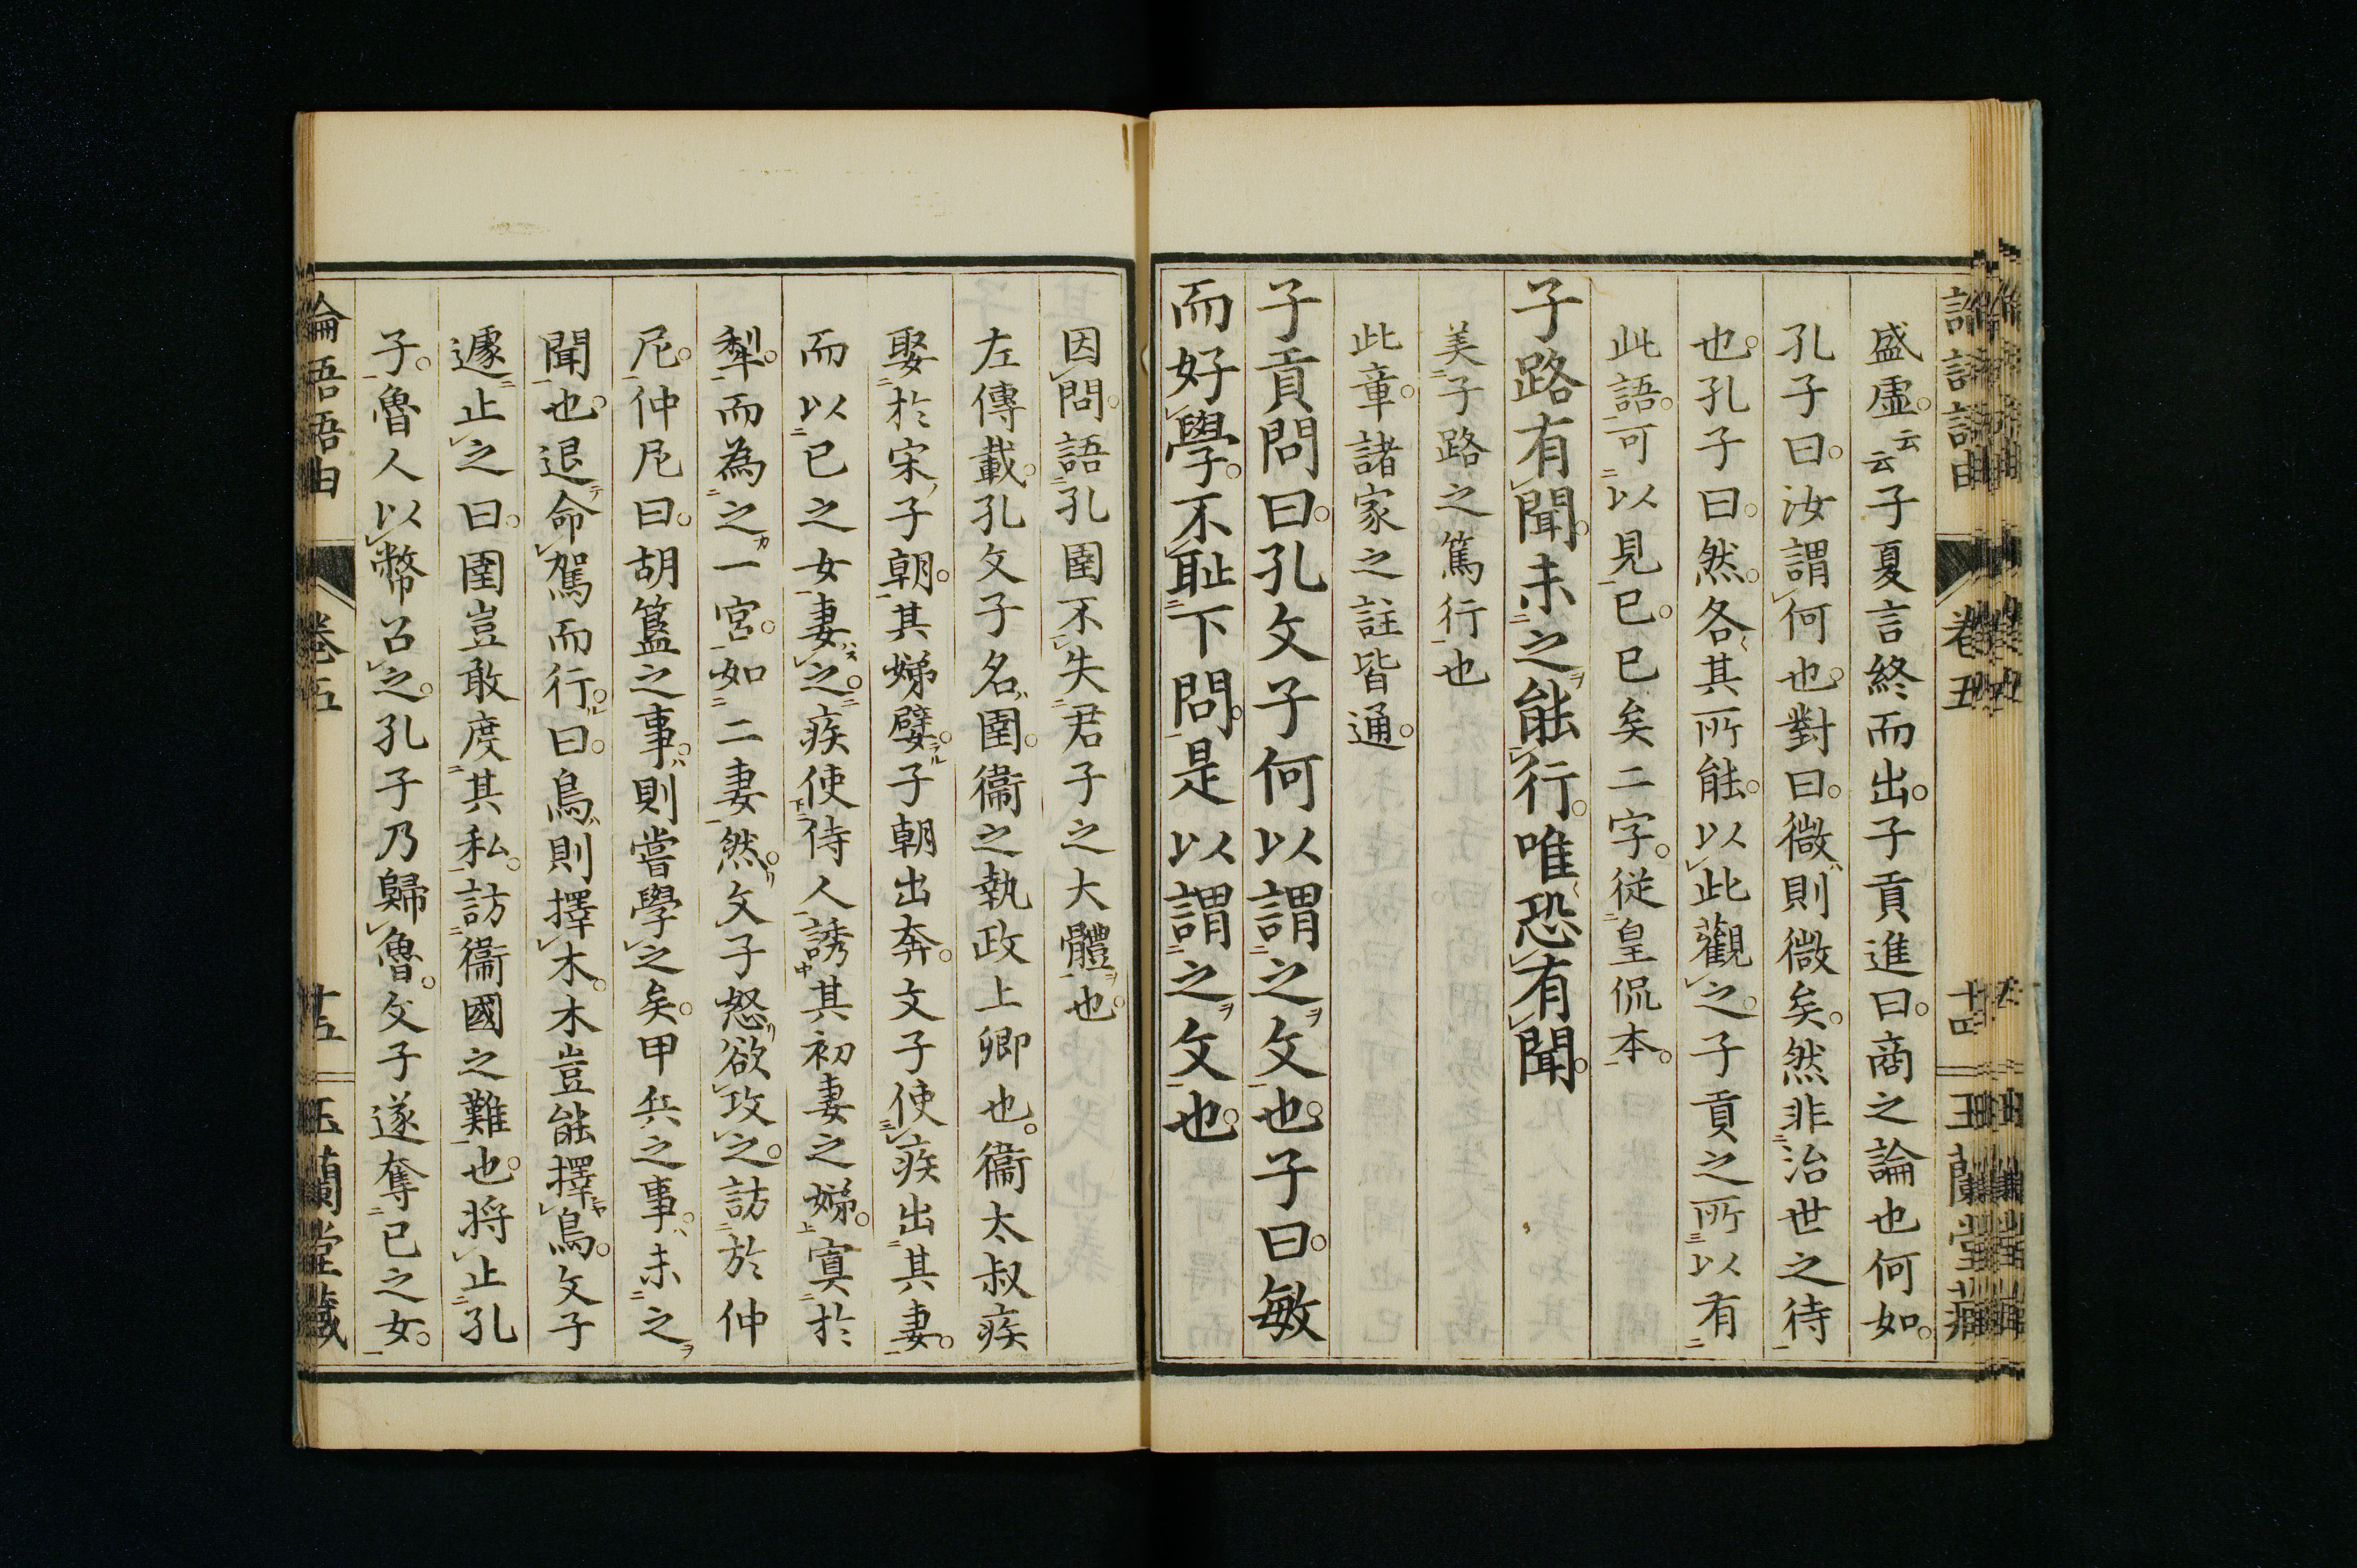 盛虛。云云子夏言終而出。子貢進曰。商之論也何如。
孔子曰。汝謂何也。對曰。微則微矣。然非治世之待
也。孔子曰。然。各其所能。以此觀之。子貢之所以有
此語。可以見已。已矣二字。從皇侃本。
子路有聞。未之能行。唯恐有聞。
美子路之篤行也
此章。諸家之註皆通。
子貢問曰。孔文子何以謂之文也。子曰。敏
而好學。不恥下問。是以謂之文也。
因問。語孔圉不失君子之大體也。
左傳載。孔文子名圉。衞之執政上卿也。衞太叔疾
娶於宋子朝。其娣嬖。子朝出奔。文子使疾出其妻。
而以己之女妻之。疾使侍人誘其初妻之娣。寘於
犁。而為之一宮。如二妻然。文子怒欲攻之。訪於仲
尼。仲尼曰。胡簋之事。則嘗學之矣。甲兵之事。未之
聞也。退命駕而行。曰。鳥則擇木。木豈能擇鳥。文子
遽止之曰。圉豈敢度其私。訪衞國之難也。將止。孔
子。魯人以幣召之。孔子乃歸魯。文子遂奪己之女。
論語語由 卷五 十五 玉蘭堂藏